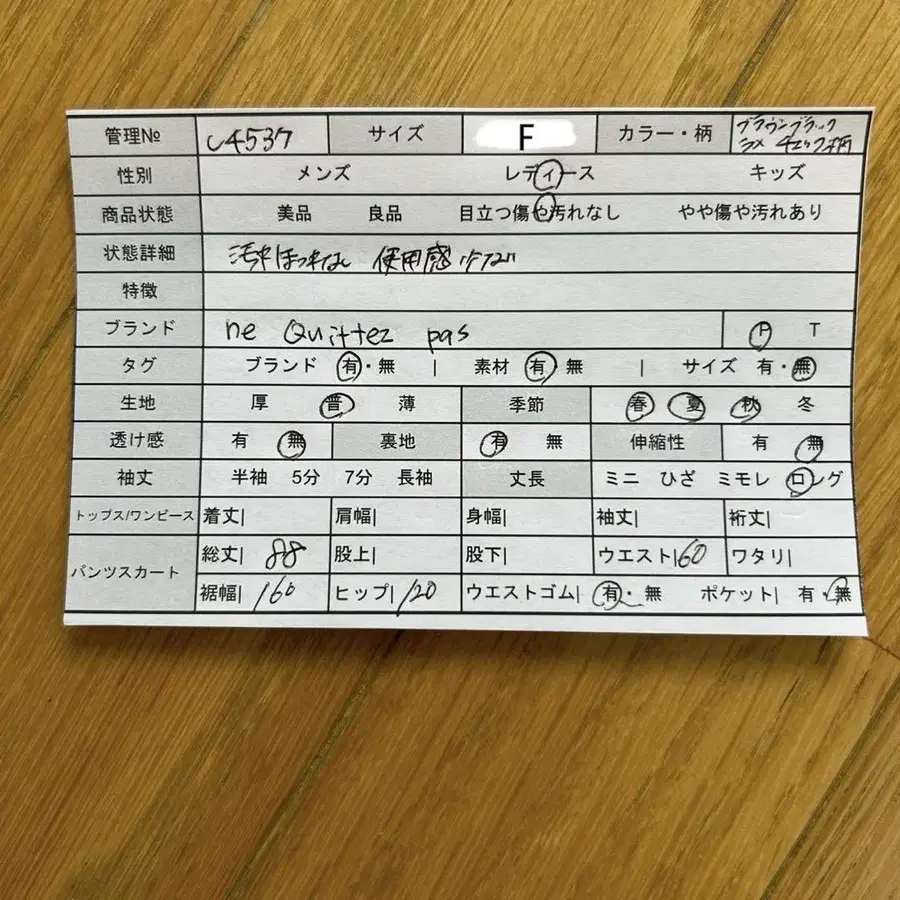 管理№ C4537 サイズ F カラー・柄 ブラウンブラック
ラメ チェック柄
性別 メンズ レディース キッズ
商品状態 美品 良品 目立つ傷や汚れなし やや傷や汚れあり
状態詳細 汚れほつれなし 使用感
特徴
ブランド ne Quittez pas P T
タグ ブランド 有・無 | 素材 有・無 | サイズ 有・無
生地 厚 普 薄 季節 春 夏 秋 冬
透け感 有 無 裏地 有 無 伸縮性 有 無
袖丈 半袖 5分 7分 長袖 丈長 ミニ ひざ ミモレ ロング
トップス/ワンピース 着丈| 肩幅| 身幅| 袖丈| 裄丈|
パンツスカート 総丈| 88 股上| 股下| ウエスト| 60 ワタリ|
裾幅| 160 ヒップ| 120 ウエストゴム| 有・無 ポケット| 有・無